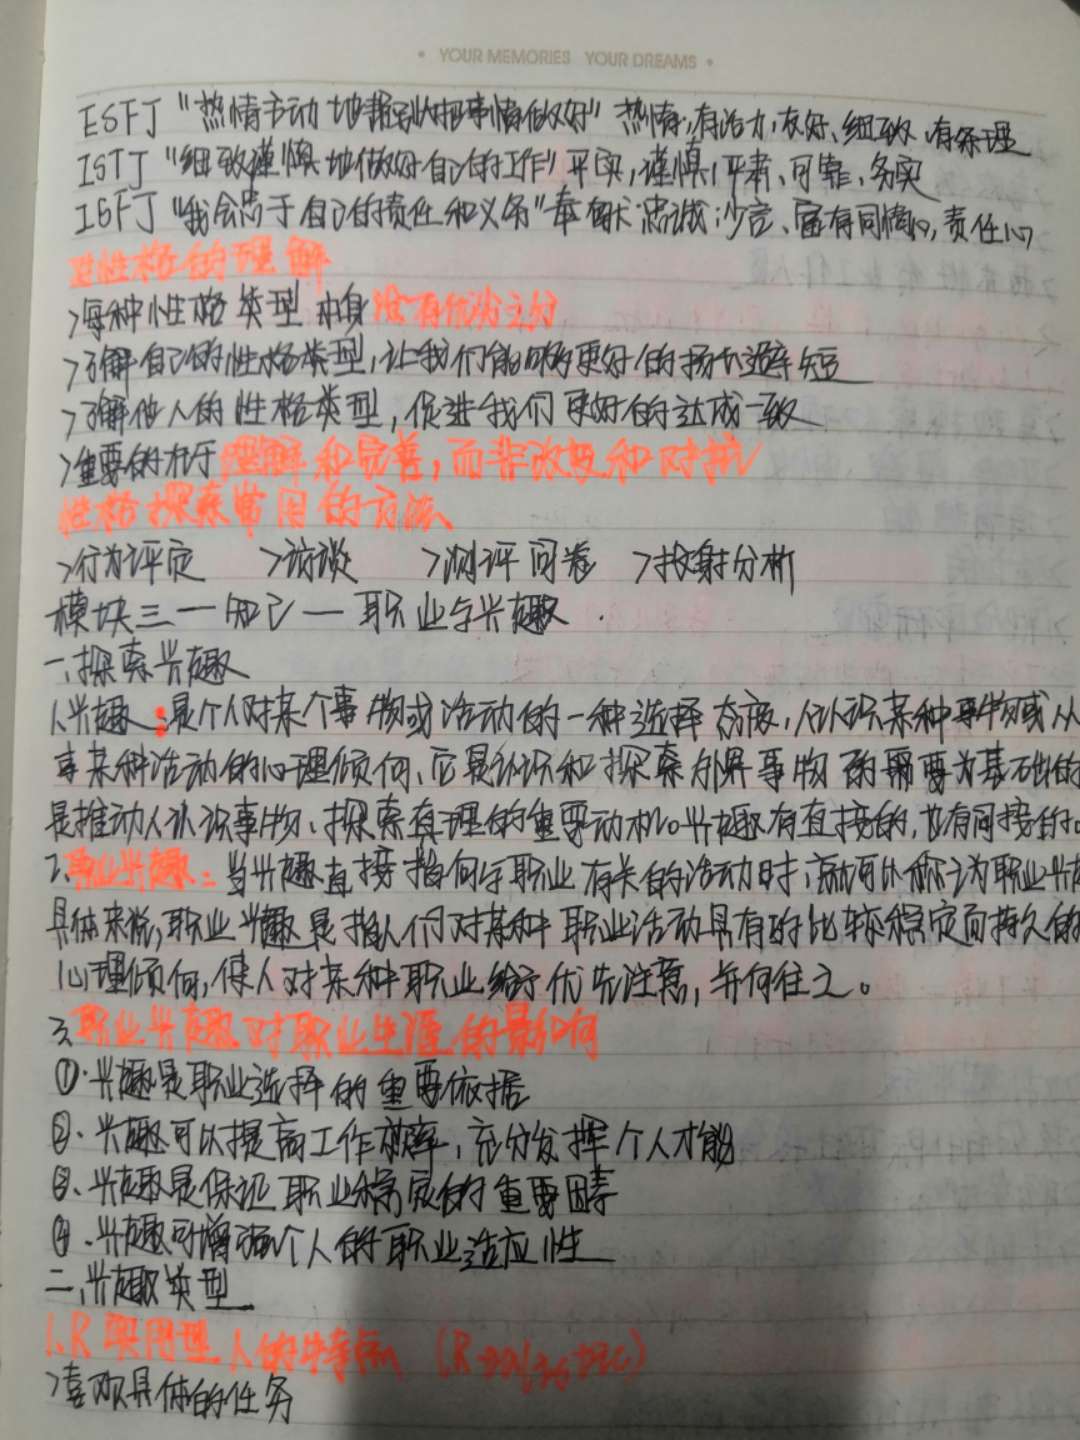 • YOUR MEMORIES YOUR DREAMS •
ESFJ“热情主动地帮别人把事情做好”热情,有活力,友好、细致、有条理
ISTJ“细致谨慎地做好自己的工作”平实,谨慎,严肃、可靠、务实
ISFJ“我会忠于自己的责任和义务”奉献忠诚,沙言、富有同情心,责任心
对性格的理解
>每种性格类型本身没有优劣之分
>了解自己的性格类型,让我们能够更好的扬长避短
>了解他人的性格类型,促进我们更好的达成一致
>重要的在于理解和完善,而非改变和对抗
性格探索常用的方法
>行为评定 >访谈 >测评问卷 >投射分析
模块三一知己一职业与兴趣
一.探索兴趣
1.兴趣:是个人对某个事物或活动的一种选择态度,人认识某种事物或从
事某种活动的心理倾向、它是认识和探索外界事物的需要为基础的
是推动人认识事物、探索真理的重要动机。兴趣有直接的,也有间接的。
2.职业兴趣:当兴趣直接指向与职业有关的活动时,就可以称之为职业兴趣
具体来说,职业兴趣是指人们对某种职业活动具有的比较稳定而持久的
心理倾向,使人对某种职业给予优先注意,并向往之。
3.职业兴趣对职业生涯的影响
①.兴趣是职业选择的重要依据
②.兴趣可以提高工作效率,充分发挥个人才能
③.兴趣是保证职业稳定的重要因素
④.兴趣可增强个人的职业适应性
二,兴趣类型
1.R实用型人的特点 (Realistic)
>喜欢具体的任务